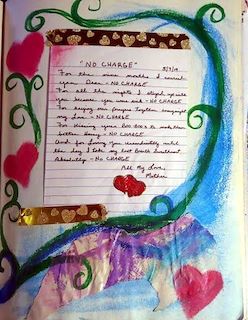 "NO CHARGE"
For the nine months I carried
you Dear - NO CHARGE
For all the nights I stayed up with
you because you were sick - NO CHARGE
For keeping our Family Together
my Love - NO CHARGE
For Kissing your Boo Boo's to make them
better Honey - NO CHARGE
And for Loving you Unconditionally until
the day I take my last Breath
Absolutely - NO CHARGE
All My Love,
Mother